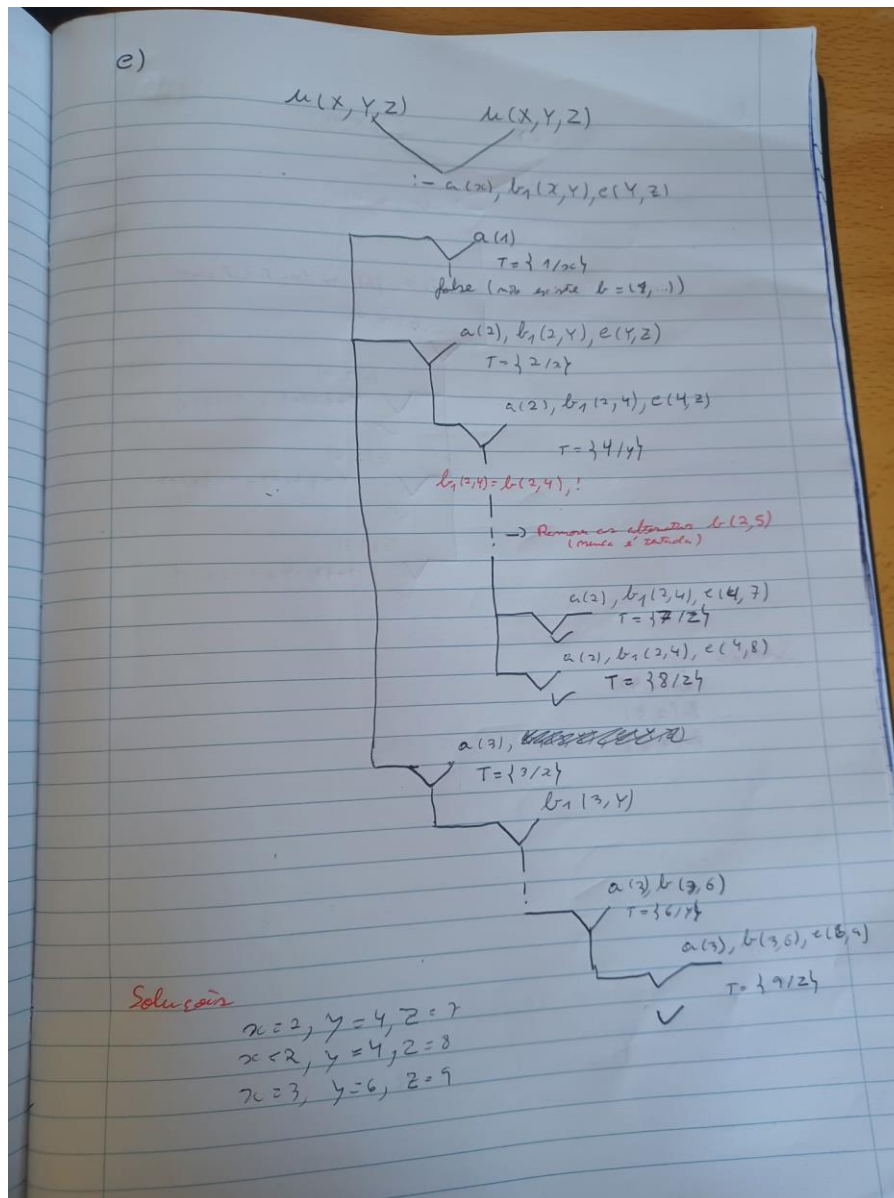 e)
u(X,Y,Z) u(X,Y,Z)
:- a(x), b1(X,Y), c(Y,Z)
a(1)
T={1/x}
false (não existe b=(1,...))
a(2), b1(2,Y), c(Y,Z)
T={2/x}
a(2), b1(2,4), c(4,Z)
T={4/y}
b1(2,4)=b(2,4),!
→ Remove as alternativas b(2,5)
(nunca é testada)
a(2), b1(2,4), c(4,7)
T={7/Z}
a(2), b1(2,4), c(4,8)
T={8/Z}
a(3),
T={3/x}
b1(3,Y)
a(3), b(3,6)
T={6/Y}
a(3), b(3,6), c(6,9)
T={9/Z}
Soluções
x=2, y=4, Z=7
x=2, y=4, Z=8
x=3, y=6, Z=9